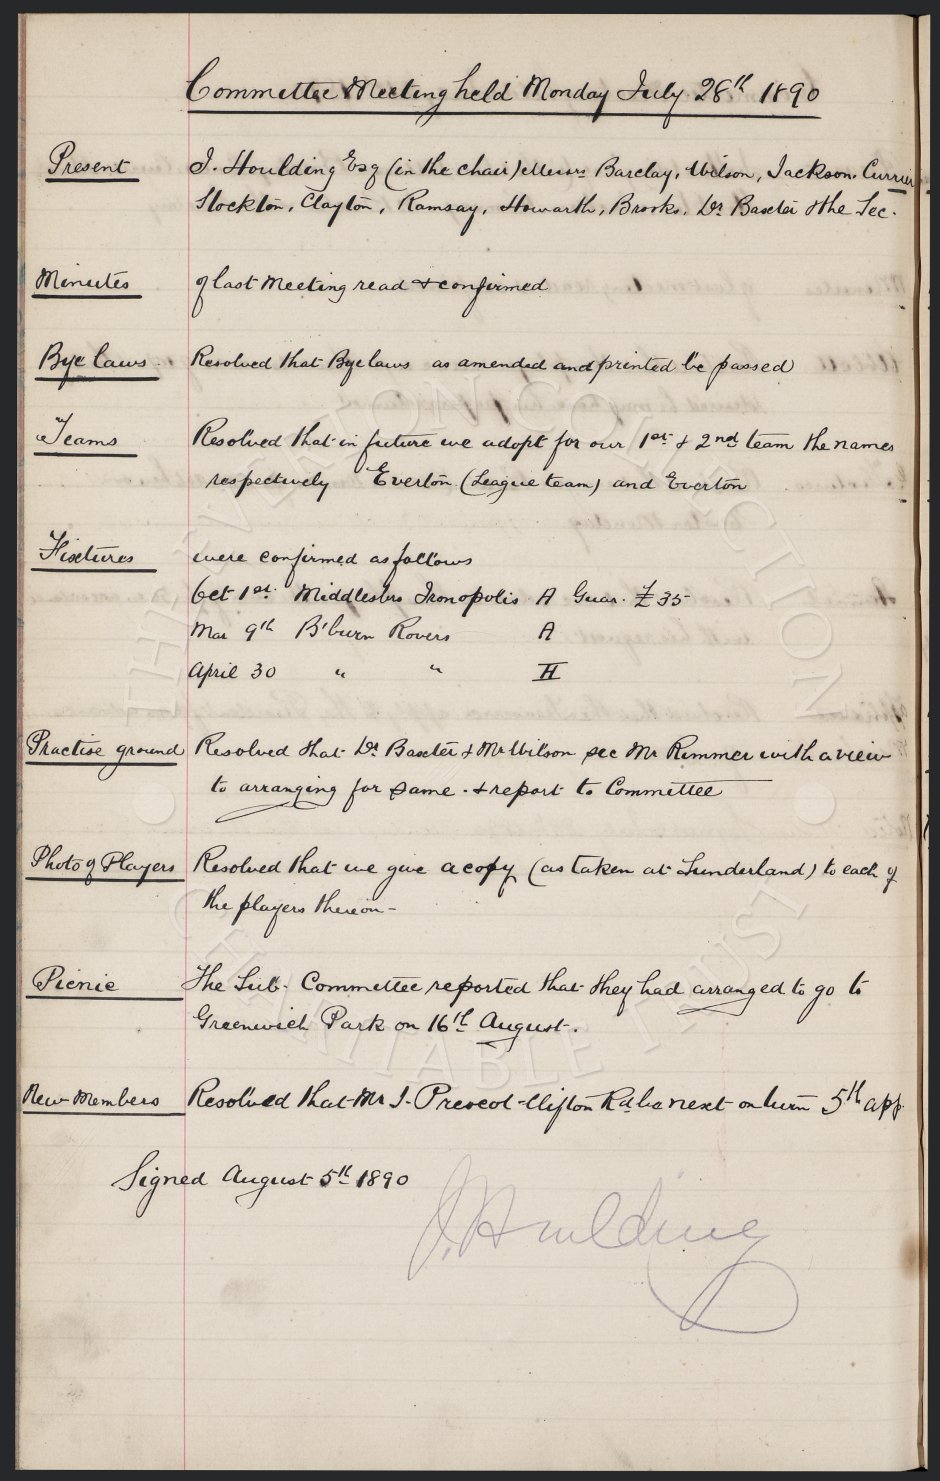 Committee Meeting held Monday July 28th 1890
Present J. Houlding Esq (in the chair) Messrs Barclay, Wilson, Jackson, Currier
Stockton, Clayton, Ramsay, Howarth, Brooks, Dr Baxter & the Sec.
Minutes of last Meeting read & confirmed
Bye laws Resolved that Bye laws as amended and printed be passed
Teams Resolved that in future we adopt for our 1st & 2nd team the names
respectively Everton (League team) and Everton
Fixtures were confirmed as follows
Oct 1st Middlesbro Ironopolis A Guar. £35
Mar 9th B'burn Rovers A
April 30 " " H
Practise ground Resolved that Dr Baxter & Mr Wilson see Mr Rimmer with a view
to arranging for same & report to Committee
Photo of Players Resolved that we give a copy (as taken at Sunderland) to each of
the players thereon -
Picnic The Sub-Committee reported that they had arranged to go to
Greenwich Park on 16th August.
New Members Resolved that Mr J. Prescot Clifton Rd be next on turn 5th app
Signed August 5th 1890
J. Houlding
THE EVERTON COLLECTION
CHARITABLE TRUST